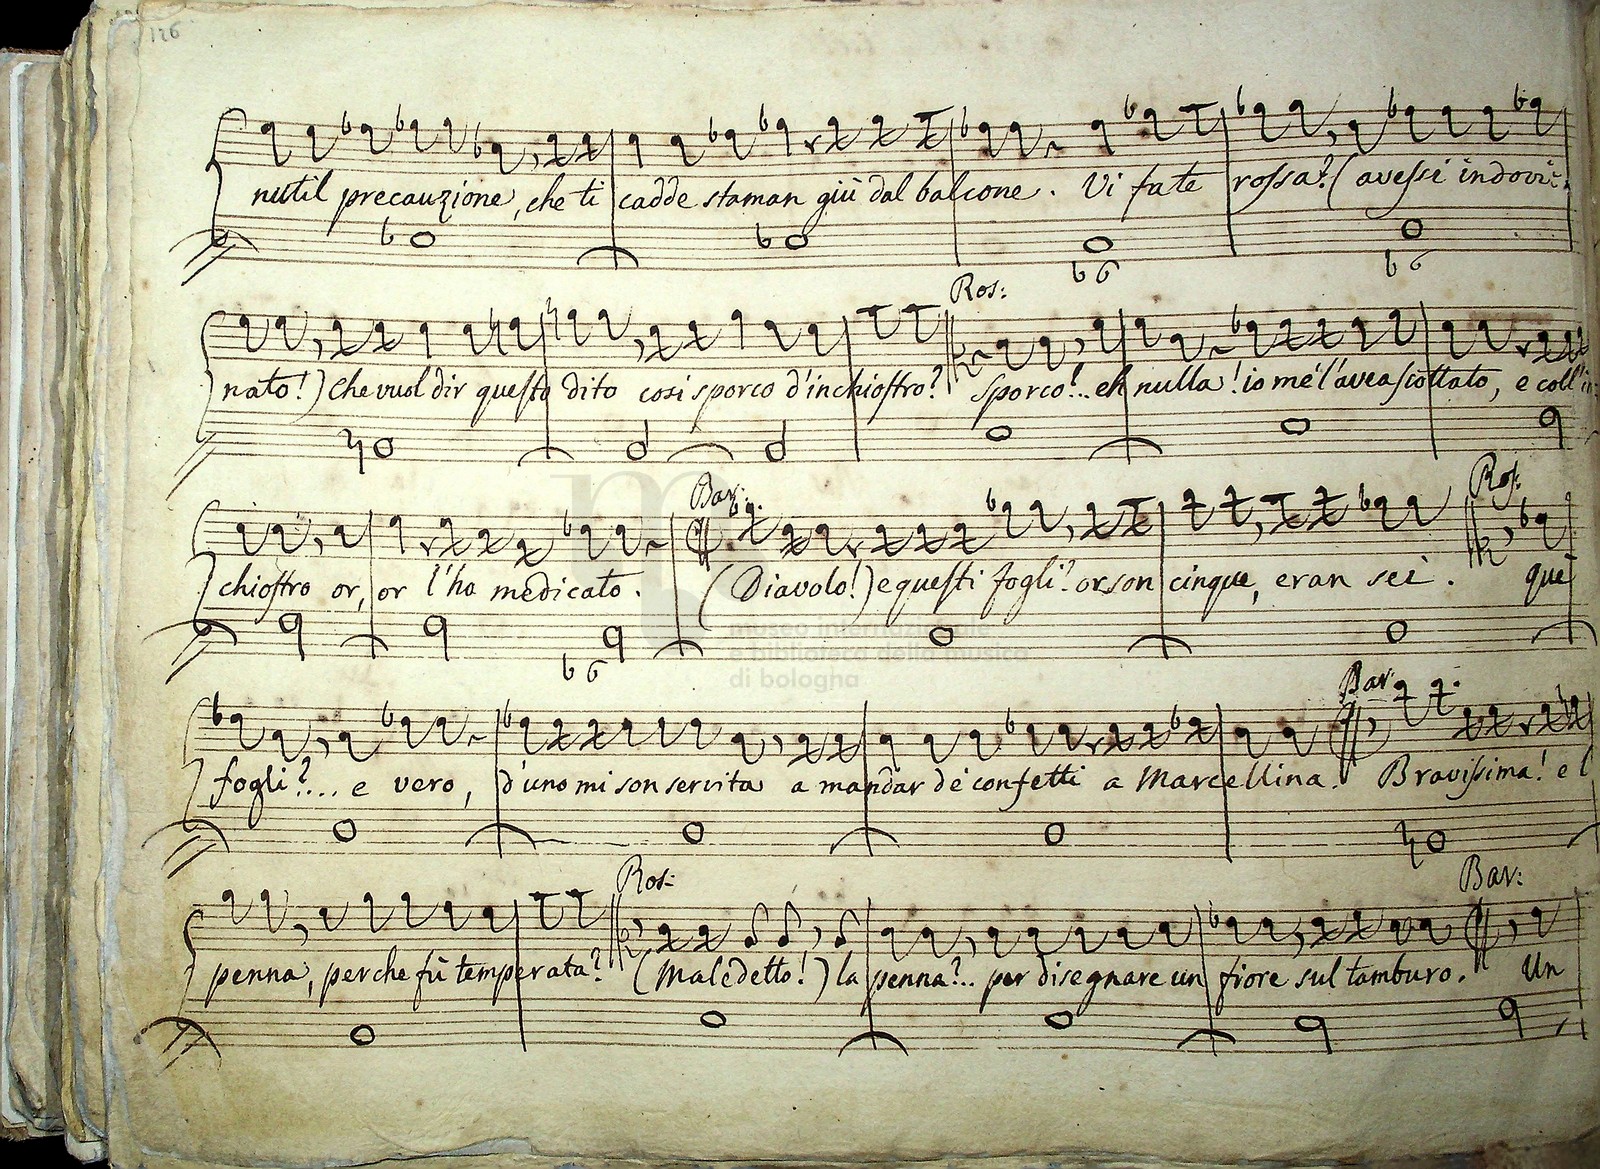 126
nutil precauzione, che ti cadde staman giù dal balcone. Vi fate rossa? (avessi indovi:
b b b6 b6
Ros:
nato!) Che vuol dir questo dito così sporco d'inchiostro? Sporco!.. eh nulla! io me l'avea scottato, e coll'in:
Bar: Ros:
chiostro or, or l'ho medicato. (Diavolo!) e questi fogli? or son cinque, eran sei. que
b6
museo internazionale
e biblioteca della musica
di bologna
Bar:
fogli?... e vero, d'uno mi son servita a mandar de' confetti a Marcellina. Bravissima! e l
Ros: Bar:
penna, perche fù temperata? (Maledetto!) la penna?.. per disegnare un fiore sul tamburo. Un